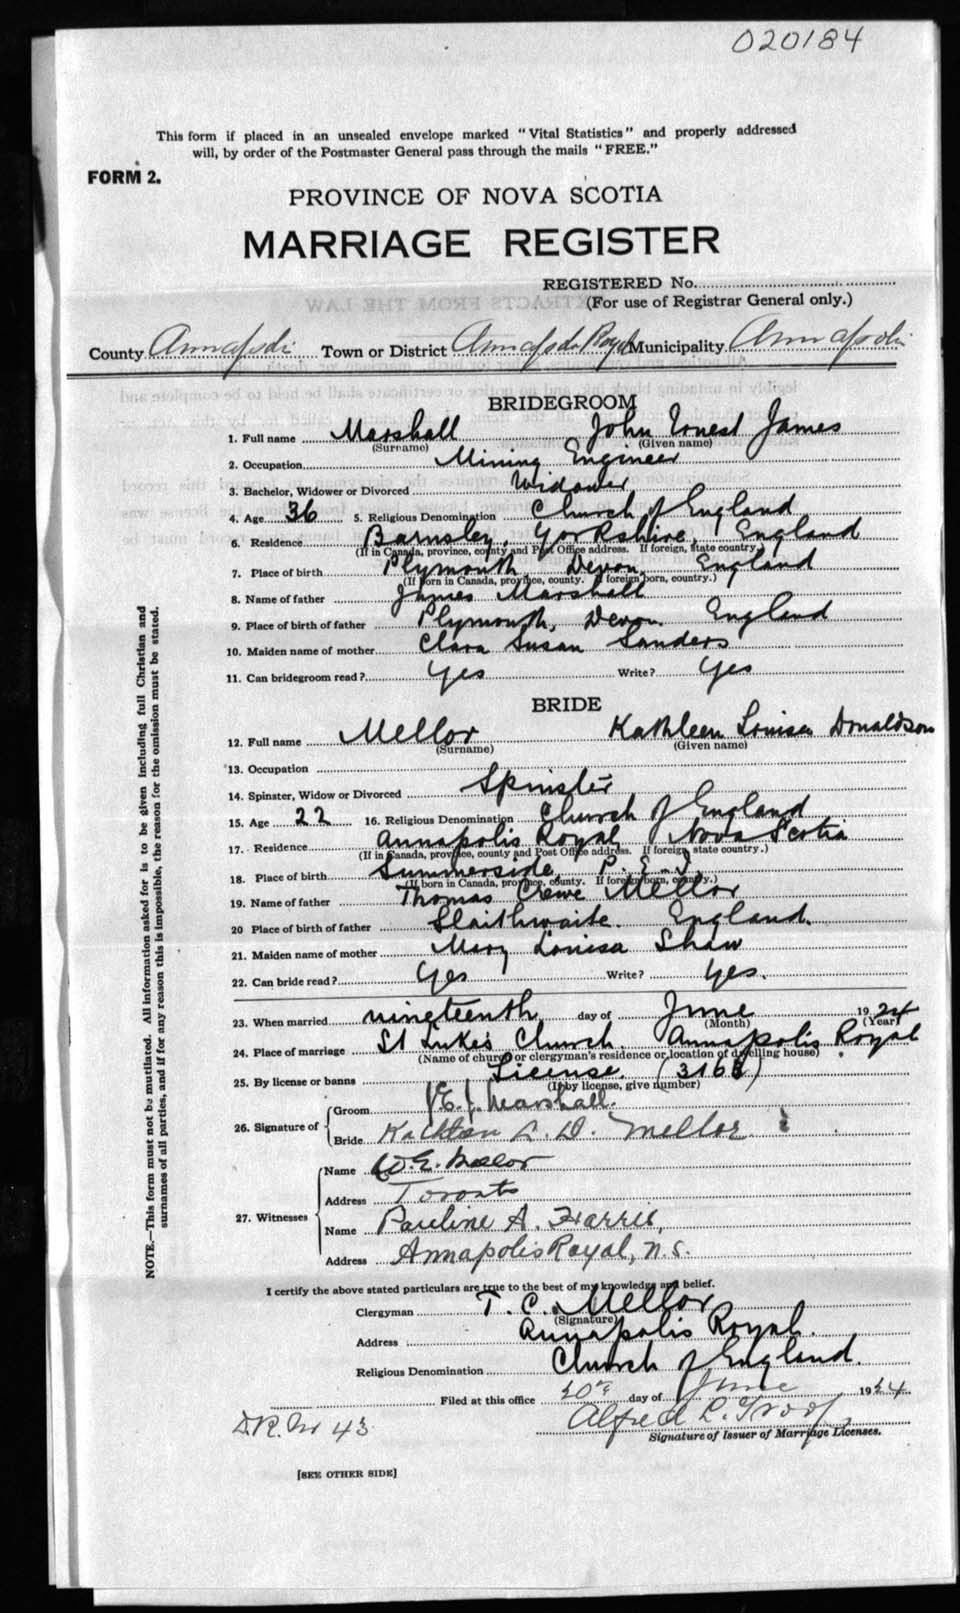 020184
This form if placed in an unsealed envelope marked "Vital Statistics" and properly addressed
will, by order of the Postmaster General pass through the mails "FREE."
FORM 2.
PROVINCE OF NOVA SCOTIA
MARRIAGE REGISTER
REGISTERED No.
(For use of Registrar General only.)
County Annapolis Town or District Annapolis Royal Municipality Annapolis
BRIDEGROOM
1. Full name Marshall John Ernest James
(Surname) (Given name)
2. Occupation Mining Engineer
3. Bachelor, Widower or Divorced Widower
4. Age 36 5. Religious Denomination Church of England
6. Residence Barnsley, Yorkshire, England
(If in Canada, province, county and Post Office address. If foreign, state country.)
7. Place of birth Plymouth Devon England
(If born in Canada, province, county. If foreign born, country.)
8. Name of father James Marshall
9. Place of birth of father Plymouth, Devon England
10. Maiden name of mother Clara Susan Sanders
11. Can bridegroom read? Yes Write? Yes
BRIDE
12. Full name Mellor Kathleen Louisa Donaldson
(Surname) (Given name)
13. Occupation
14. Spinster, Widow or Divorced Spinster
15. Age 22 16. Religious Denomination Church of England
17. Residence Annapolis Royal, Nova Scotia
(If in Canada, province, county and Post Office address. If foreign, state country.)
18. Place of birth Summerside, P. E. I.
(If born in Canada, province, county. If foreign born, country.)
19. Name of father Thomas Crewe Mellor
20 Place of birth of father Slaithwaite. England.
21. Maiden name of mother Mary Louisa Shaw
22. Can bride read? Yes Write? Yes.
23. When married nineteenth day of June 1924
(Month) (Year)
24. Place of marriage St Luke's Church. Annapolis Royal
(Name of church or clergyman's residence or location of dwelling house)
25. By license or banns License. (3168)
(If by license, give number)
26. Signature of Groom J.E.J. Marshall.
Bride Kathleen L. D. Mellor
27. Witnesses Name W.E. Mellor
Address Toronto
Name Pauline A. Harris,
Address Annapolis Royal, N.S.
I certify the above stated particulars are true to the best of my knowledge and belief.
Clergyman T. C. Mellor
(Signature)
Address Annapolis Royal.
Religious Denomination Church of England.
Filed at this office 20th day of June 1924
Alfred L.
D.R. No 43
Signature of Issuer of Marriage Licenses.
[SEE OTHER SIDE]
NOTE.—This form must not be mutilated. All information asked for is to be given including full Christian and
surnames of all parties, and if for any reason this is impossible, the reason for the omission must be stated.